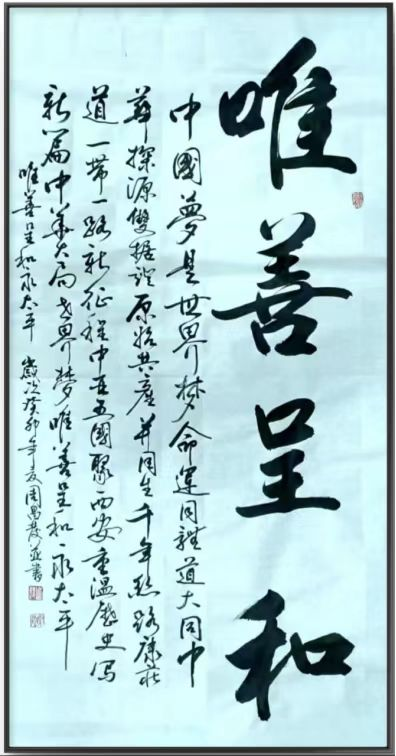 唯善呈和
中國夢是世界梦命運同體道大同中
華探源雙据證原始共產并同生千年丝路康莊
道一带一路新征程中亞五國聚西安重温歷史寫
新篇中華大局世界梦唯善呈和永太平
唯善呈和永太平 歲次癸卯年夏周昌發並書